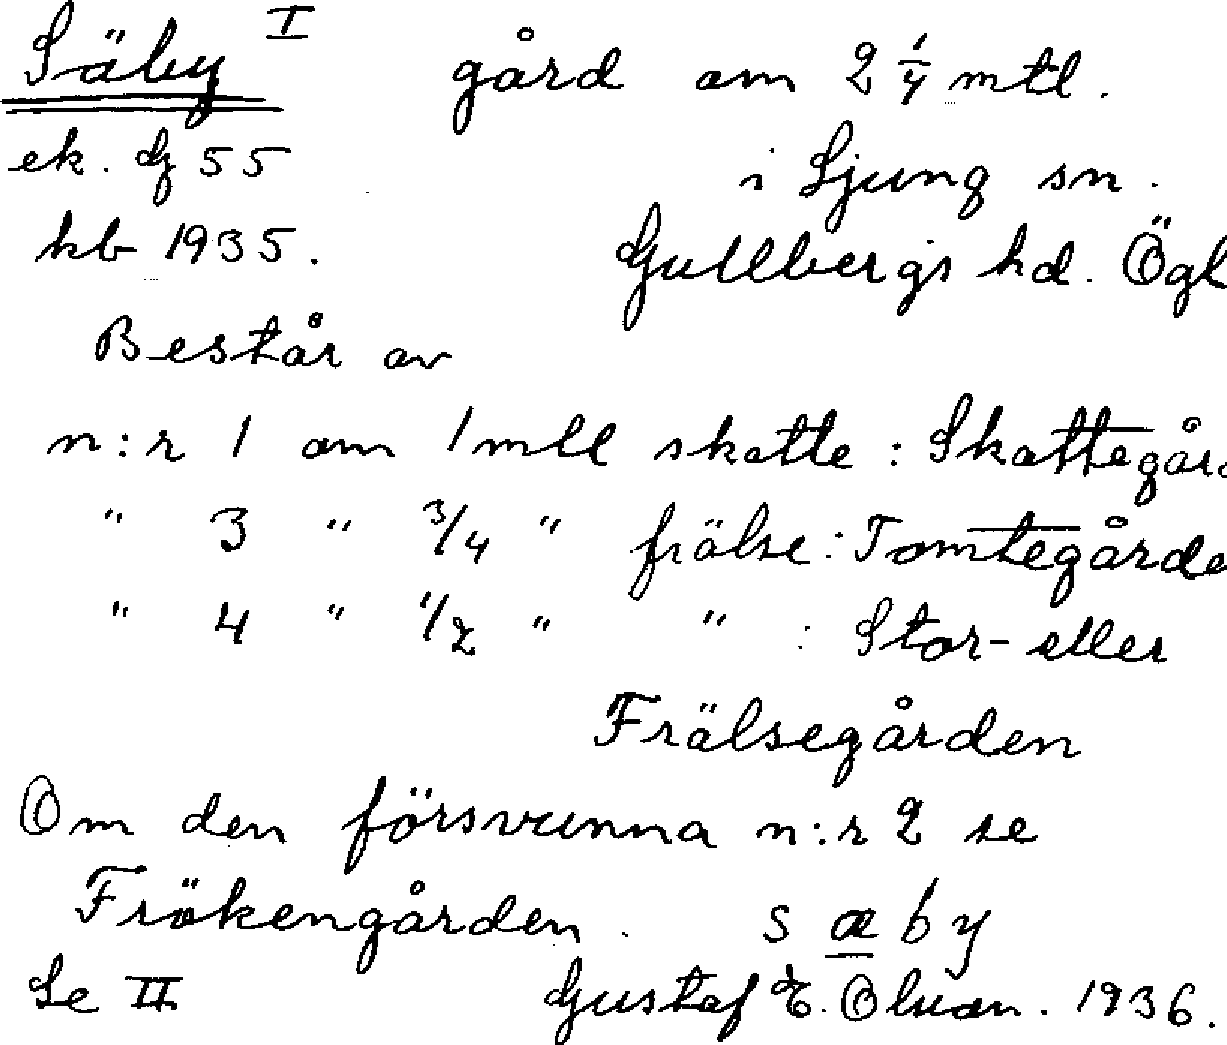 Säby I gård om 2 1/4 mtl.
ek. bg 55 i Ljung sn.
kb 1935. Gullbergs hd. Ögl
Består av
n:r 1 om 1 mtl skatte: Skattegård
" 3 " 3/4 " frälse: Tomtegårde
" 4 " 1/2 " " : Stor- eller
Frälsegården
Om den försvunna n:r 2 se
Frökengården. s æ b y
Se II Gustaf E. Olson. 1936.